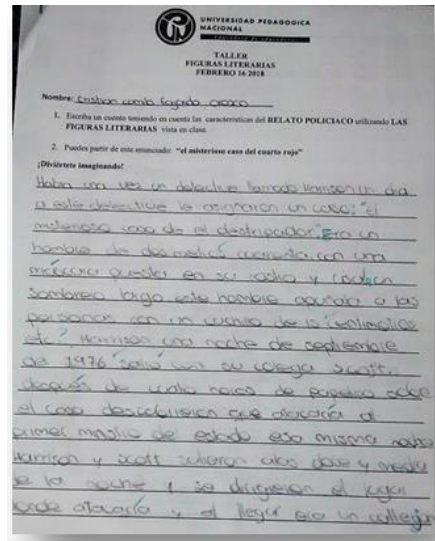 UNIVERSIDAD PEDAGOGICA
NACIONAL
TALLER
FIGURAS LITERARIAS
FEBRERO 16 2018
Nombre: Cristian camilo fajardo orozco
1. Escriba un cuento teniendo en cuenta las características del RELATO POLICIACO utilizando LAS
FIGURAS LITERARIAS vista en clase.
2. Puedes partir de este enunciado: "el misterioso caso del cuarto rojo"
¡Diviértete imaginando!
Habia una vez un detective llamado Harrison un dia
a este detective le asignaron un caso; "el
misterioso caso de el destripador" Era un
hombre de dos metros cuarenta con una
máscara puesta en su rostro y con un
sombrero largo este hombre apuñala a las
personas con un cuchillo de 15 centimetros
etc? Harrison una noche de septiembre
de 1976 salió con su colega scott.
después de cuatro horas de papeleo sobre
el caso descubrieron que atacaría al
primer ministro del estado esa misma noche
Harrison y scott salieron alas doce y media
de la noche y se dirigieron al lugar
donde atacaría y al llegar era un callejon